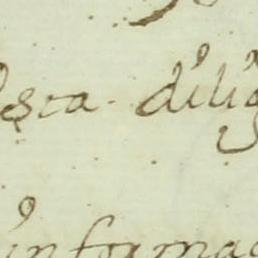 esta dilig
informac